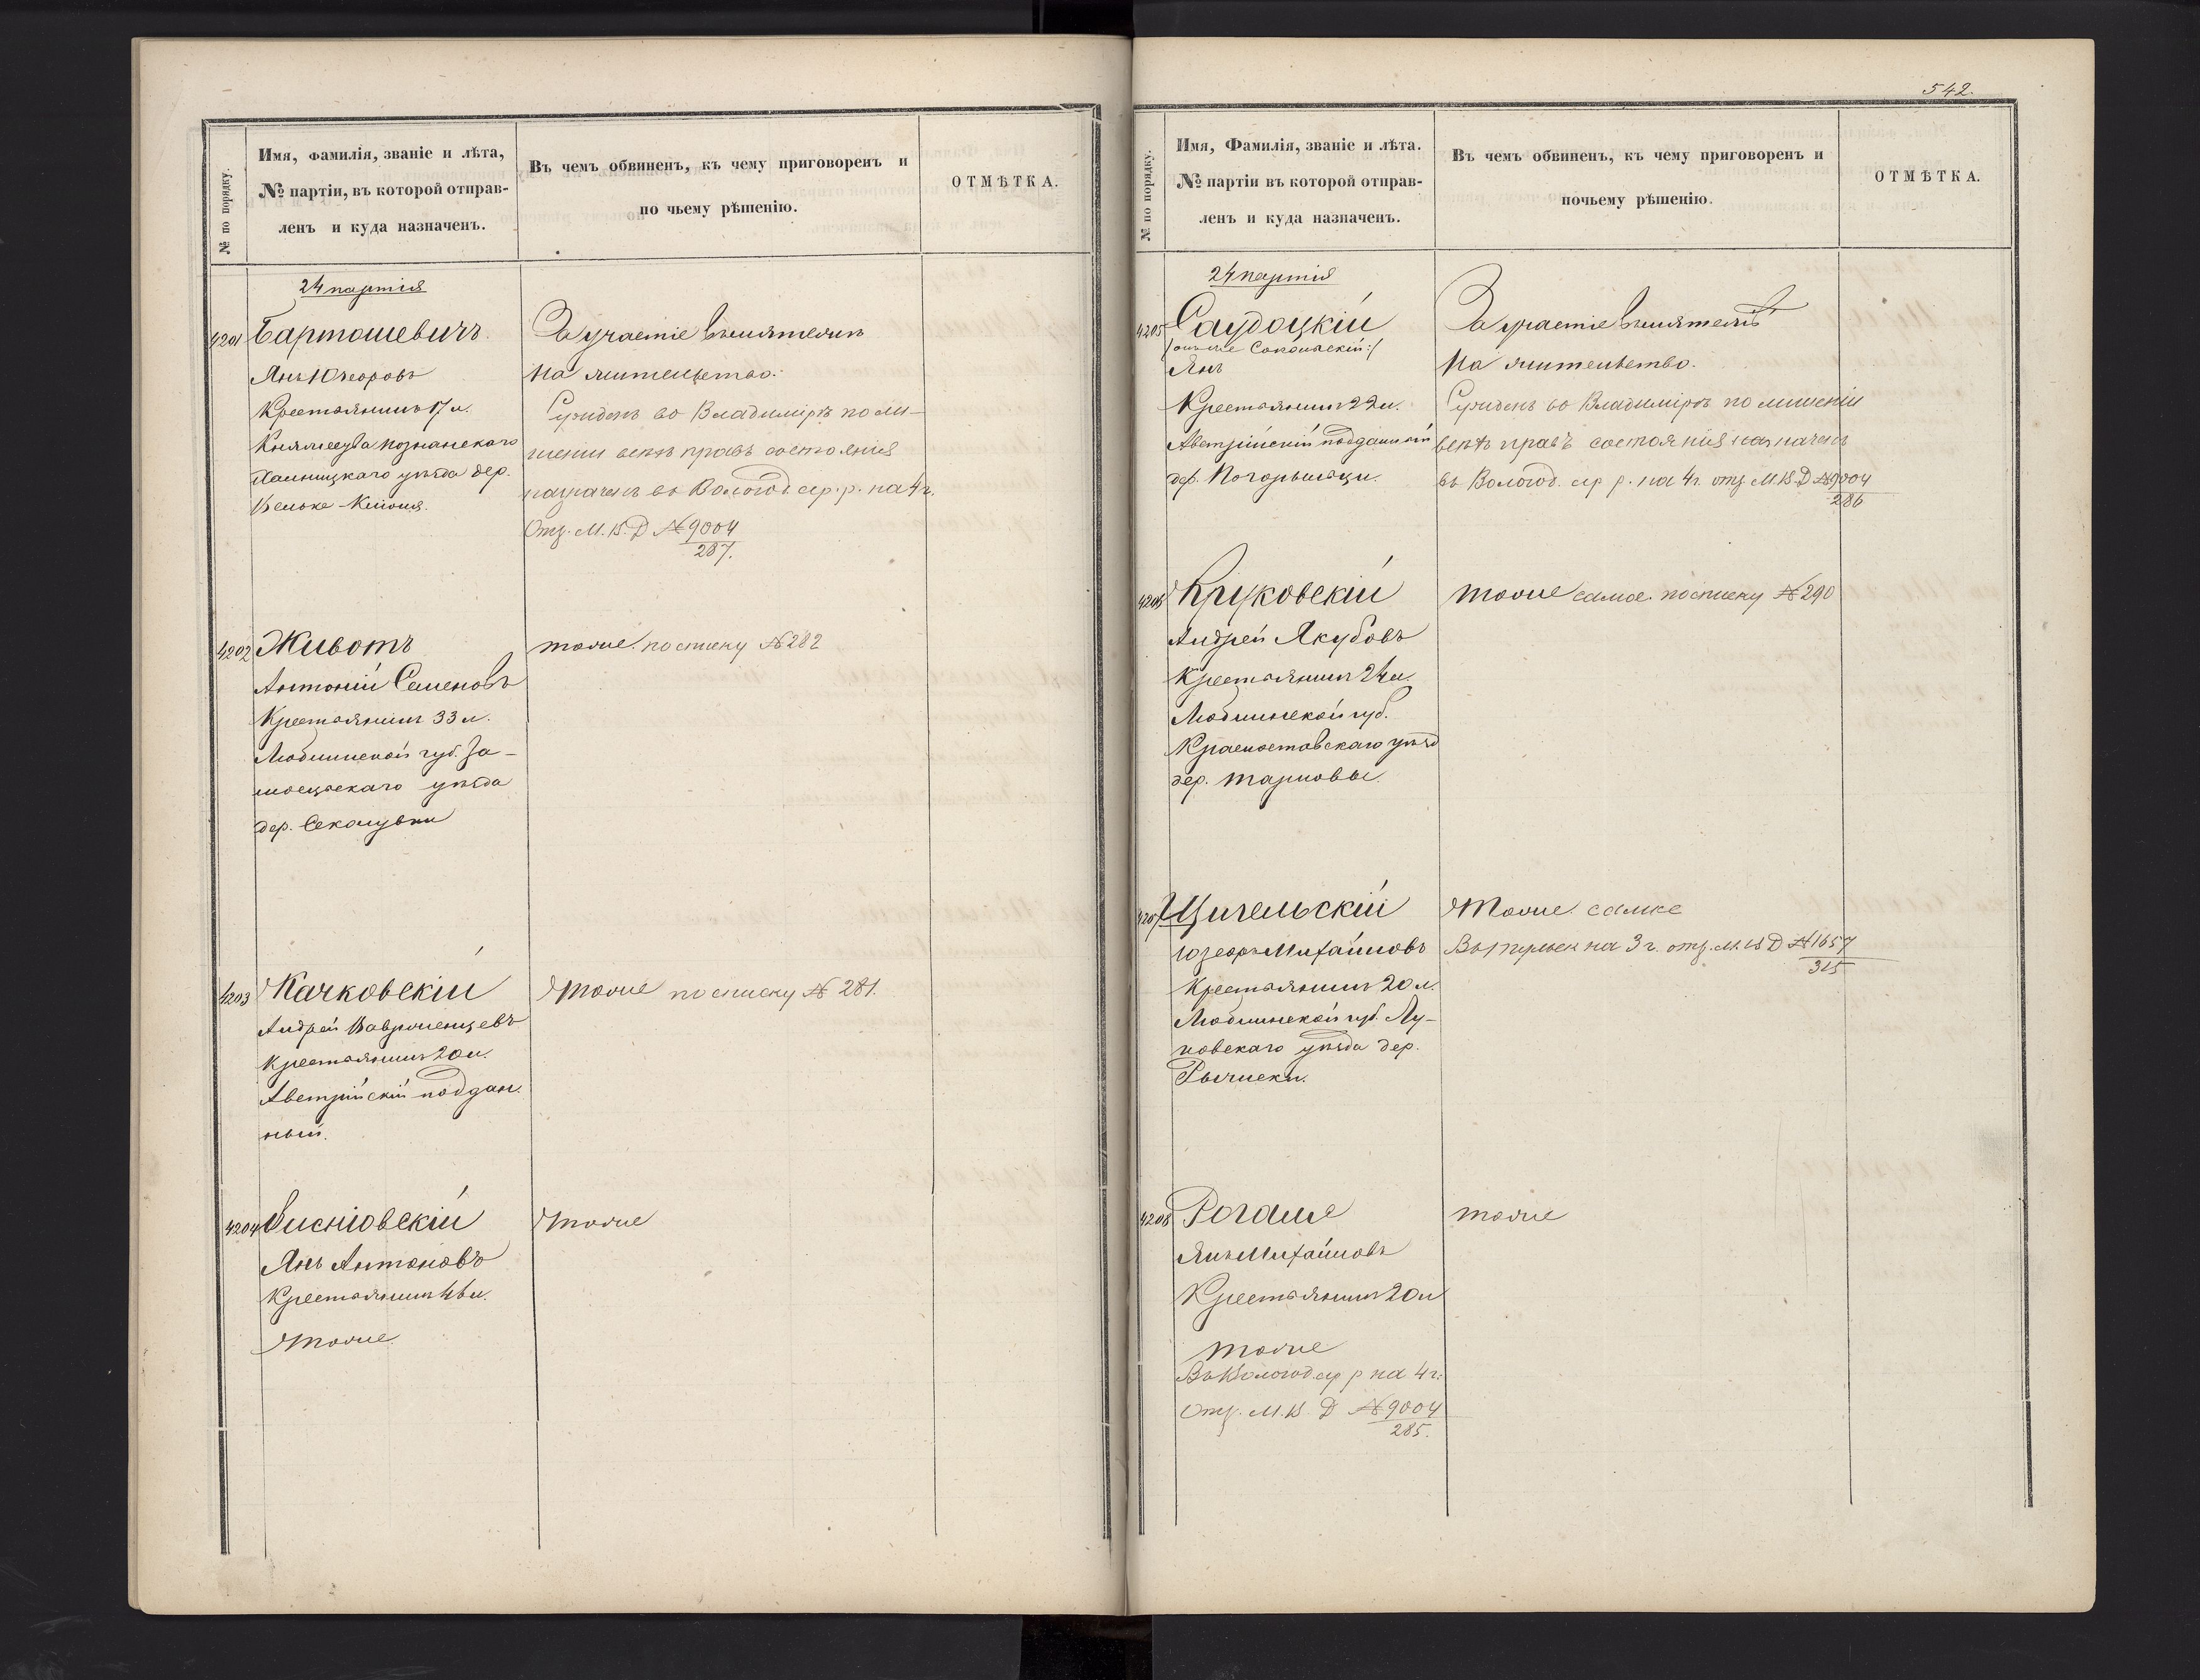 № по порядку.
Имя, фамилія, званіе и лѣта,
№ партіи, въ которой отправ-
ленъ и куда назначенъ.
Въ чемъ обвиненъ, къ чему приговоренъ и
по чьему рѣшенію.
ОТМѢТКА.
24 партія
4201 Бартошевичъ
Янъ Юзефовъ
Крестьянинъ 17 л.
Княжества Познанскаго
уѣзда дер.
За участіе въ мятежѣ
На жительство.
Сужденъ во Владимірѣ по ли-
шеніи всѣхъ правъ состоянія
назначенъ въ Вологод. ар. р. на 4 г.
Отз. М. В. Д. № 9004
287.
4202 Животъ
Антоній Семеновъ
Крестьянинъ 33 л.
Люблинской губ. За-
мосцскаго уѣзда
дер.
тоже. по списку № 282
4203 Качковскій
Андрей Вавржинцевъ
Крестьянинъ 20 л.
Австрійскій поддан-
ный.
Тоже по списку № 281.
4204 Висніовскій
Янъ Антоновъ
Крестьянинъ 46 л.
Тоже
Тоже
542.
№ по порядку.
Имя, Фамилія, званіе и лѣта.
№ партіи въ которой отправ-
ленъ и куда назначенъ.
Въ чемъ обвиненъ, къ чему приговоренъ и
почьему рѣшенію.
ОТМѢТКА.
24 партія
4205 Саудоцкій
Янъ
Крестьянинъ 22 л.
Австрійскій подданный
дер.
За участіе въ мятежѣ
На жительство.
Сужденъ во Владимірѣ по лишеніи
всѣхъ правъ состоянія назначенъ
въ Вологод. ар. р. на 4 г. отз. М. В. Д. № 9004
286
4206 Круковскій
Андрей Якубовъ
Крестьянинъ 24 л.
Люблинской губ.
Красноставскаго уѣзд
дер. Тарновы.
Тоже самое. по списку № 290
4207 Щигельскій
Юзефъ Михайловъ
Крестьянинъ 20 л.
Люблинской губ. Лу-
ковскаго уѣзда дер.
Тоже. самое
на 3 г. отз. М. В. Д. № 1657
315
4208 Рогаля
Янъ Михайловъ
Крестьянинъ 20 л
тоже
Въ Вологод. ар. р. на 4 г.
Отз. М. В. Д. № 9004
285.
тоже